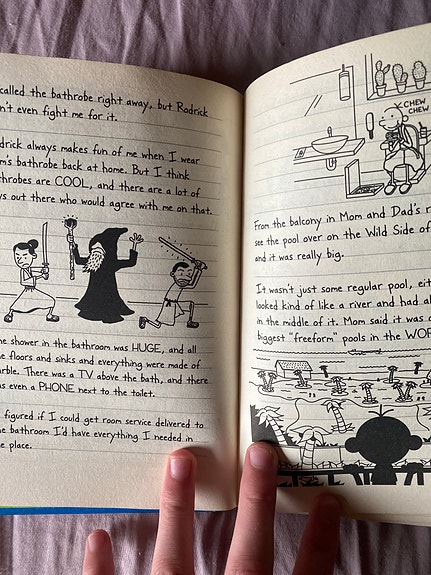 called the bathrobe right away, but Rodrick
n't even fight me for it.
drick always makes fun of me when I wear
m's bathrobe back at home. But I think
throbes are COOL, and there are a lot of
ys out there who would agree with me on that.
he shower in the bathroom was HUGE, and all
e floors and sinks and everything were made of
arble. There was a TV above the bath, and there
as even a PHONE next to the toilet.
figured if I could get room service delivered to
he bathroom I'd have everything I needed in
e place.
CHEW
CHEW
From the balcony in Mom and Dad's r
see the pool over on the Wild Side of
and it was really big.
It wasn't just some regular pool, eit
looked kind of like a river and had a
in the middle of it. Mom said it was o
biggest "freeform" pools in the WOR